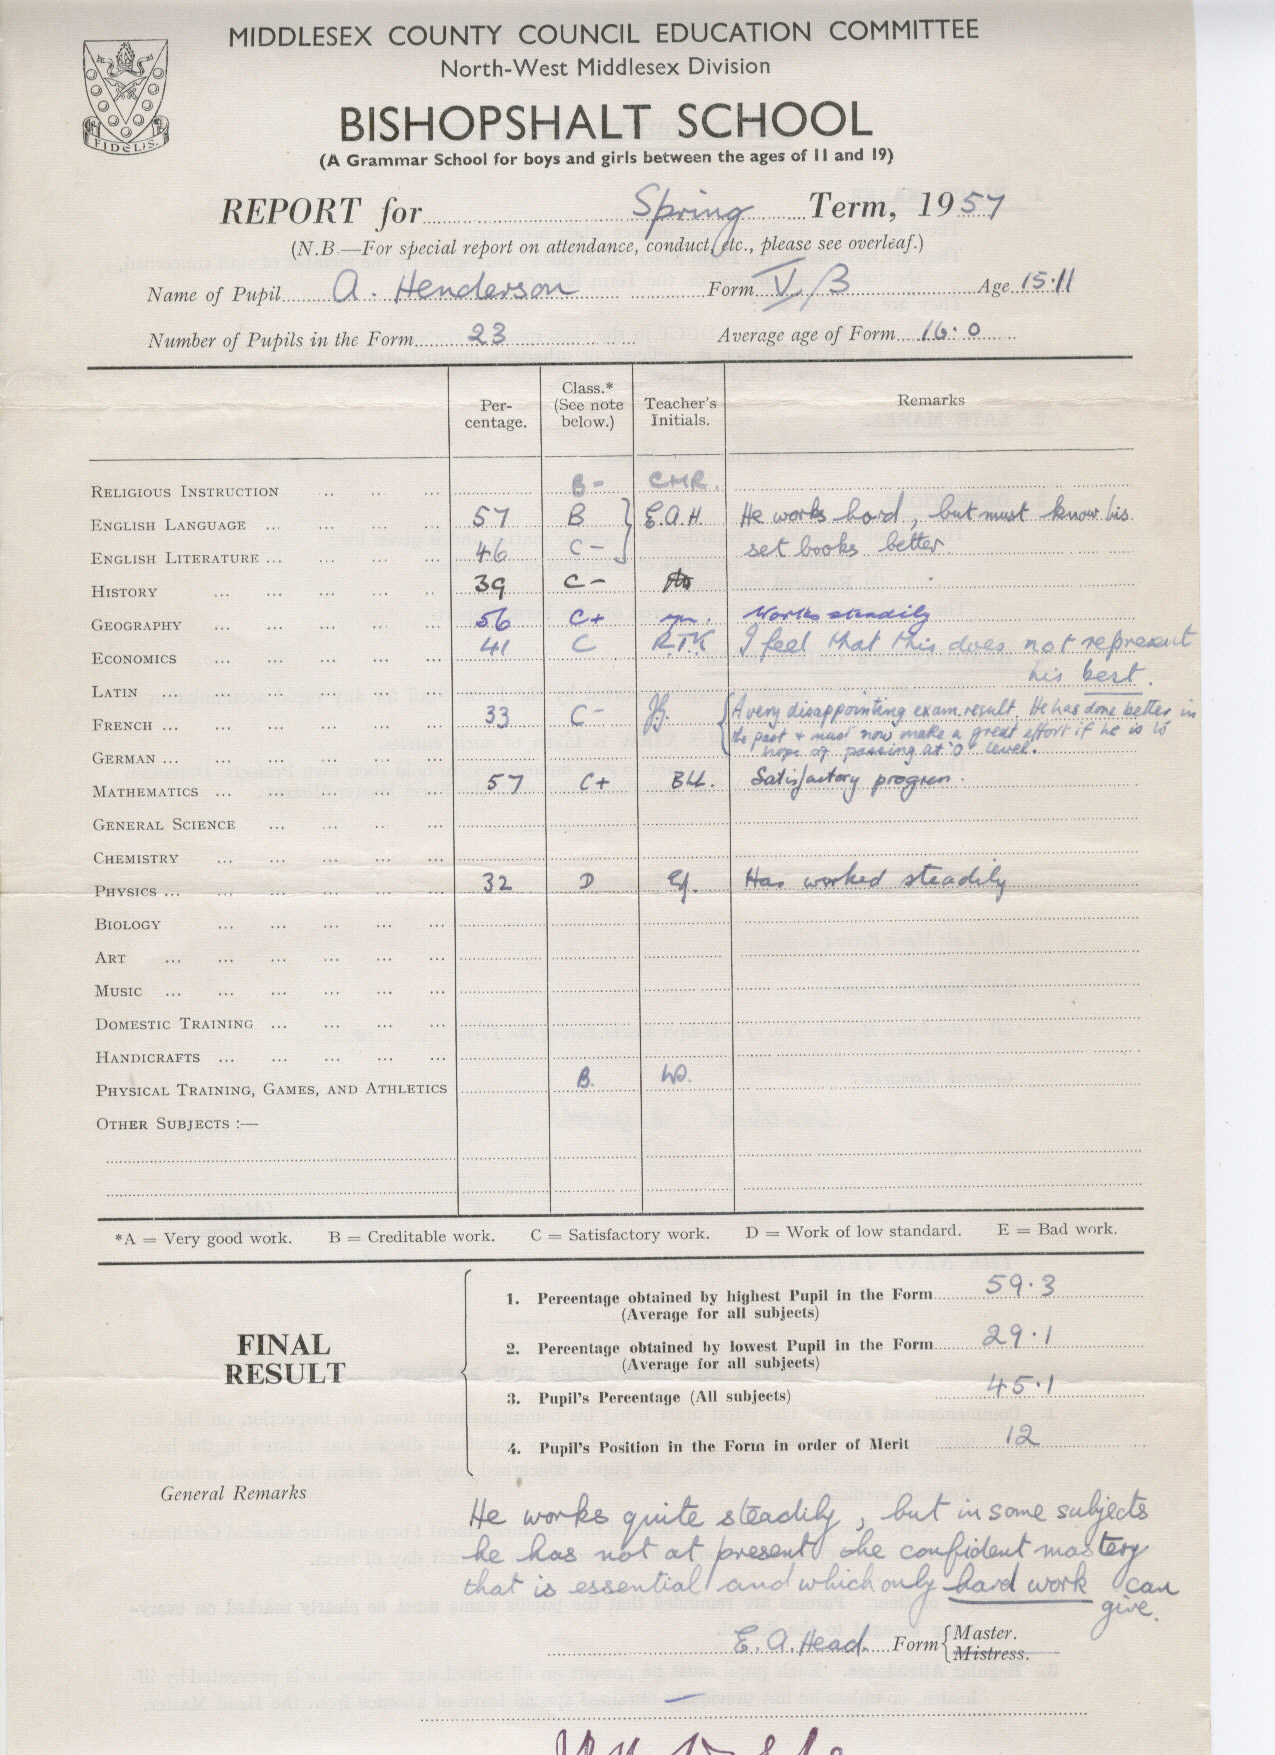 MIDDLESEX COUNTY COUNCIL EDUCATION COMMITTEE
North-West Middlesex Division
BISHOPSHALT SCHOOL
(A Grammar School for boys and girls between the ages of 11 and 19)
FIDELIS.
REPORT for Spring Term, 1957
(N.B.—For special report on attendance, conduct, etc., please see overleaf.)
Name of Pupil A. Henderson Form V B Age 15.11
Number of Pupils in the Form 23 Average age of Form 16.0
Per-centage. Class.* (See note below.) Teacher's Initials. Remarks
RELIGIOUS INSTRUCTION B- CMR.
ENGLISH LANGUAGE 57 B E.A.H. He works hard, but must know his
ENGLISH LITERATURE 46 C- set books better.
HISTORY 39 C-
GEOGRAPHY 56 C+ Works steadily
ECONOMICS 41 C R.T.K I feel that this does not represent
his best.
LATIN
FRENCH 33 C- A very disappointing exam. result. He has done better in
the past & must now make a great effort if he is to
hope of passing at 'O' level.
GERMAN
MATHEMATICS 57 C+ BLL. Satisfactory progress.
GENERAL SCIENCE
CHEMISTRY
PHYSICS 32 D Has worked steadily
BIOLOGY
ART
MUSIC
DOMESTIC TRAINING
HANDICRAFTS
PHYSICAL TRAINING, GAMES, AND ATHLETICS B.
OTHER SUBJECTS :—
*A = Very good work. B = Creditable work. C = Satisfactory work. D = Work of low standard. E = Bad work.
FINAL RESULT
1. Percentage obtained by highest Pupil in the Form 59.3
(Average for all subjects)
2. Percentage obtained by lowest Pupil in the Form 29.1
(Average for all subjects)
3. Pupil's Percentage (All subjects) 45.1
4. Pupil's Position in the Form in order of Merit 12
General Remarks
He works quite steadily, but in some subjects
he has not at present the confident mastery
that is essential and which only hard work can
give.
E. A. Head. Form Master.
Mistress.